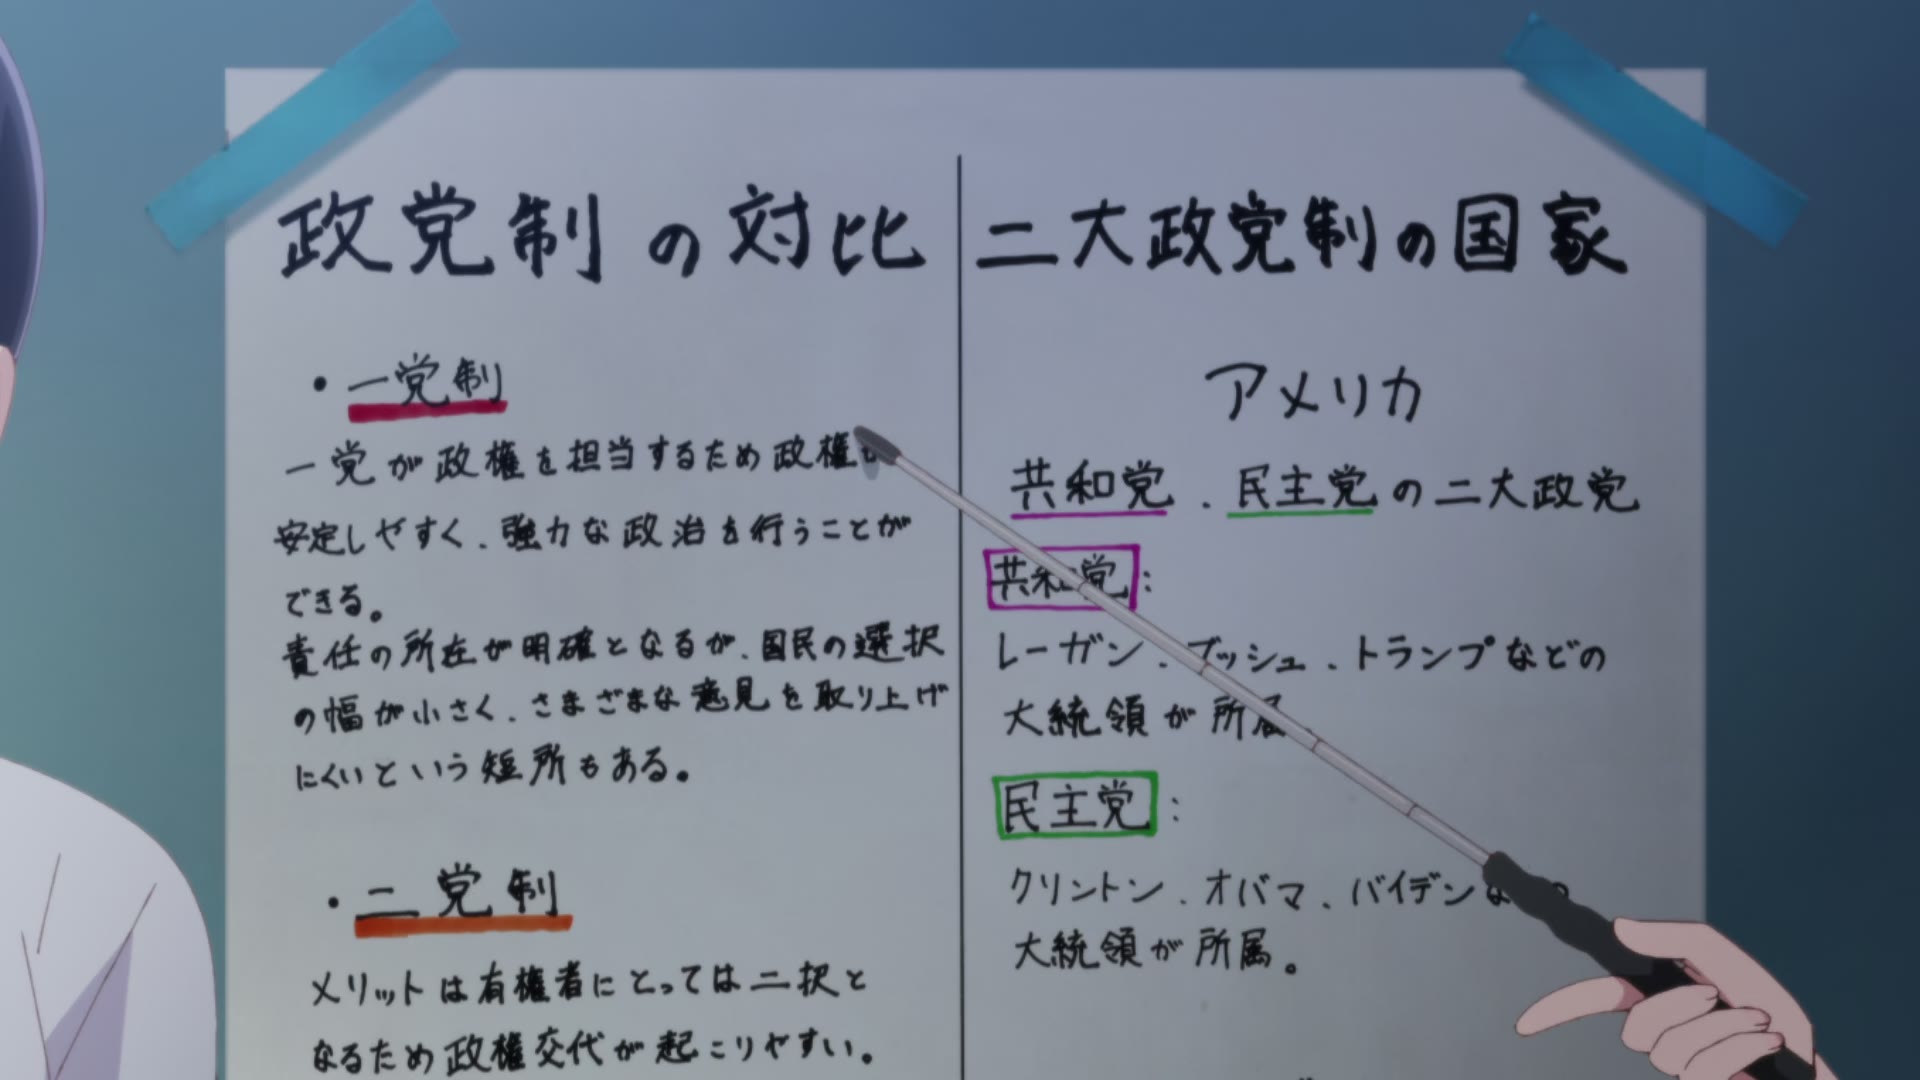 政党制の対比
・一党制
一党が政権を担当するため政権
安定しやすく、強力な政治を行うことが
できる。
責任の所在が明確となるが、国民の選択
の幅が小さく、さまざまな意見を取り上げ
にくいという短所もある。
・二党制
メリットは有権者にとっては二択と
なるため政権交代が起こりやすい。
二大政党制の国家
アメリカ
共和党、民主党の二大政党
共和党:
レーガン、ブッシュ、トランプなどの
大統領が所属
民主党:
クリントン、オバマ、バイデンな の
大統領が所属。